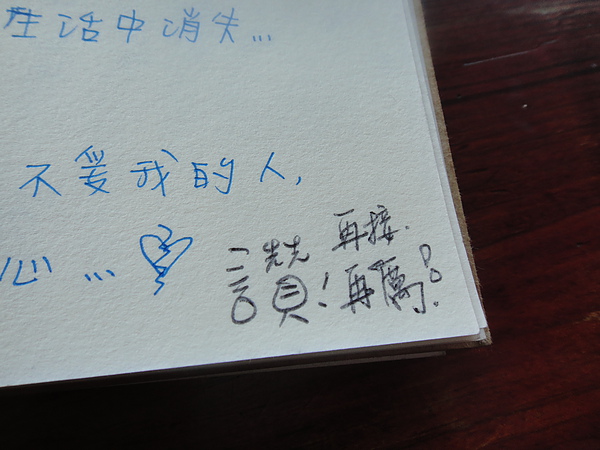 生活中消失...
不爱我的人,
心...
讚!
再接.
再厲!